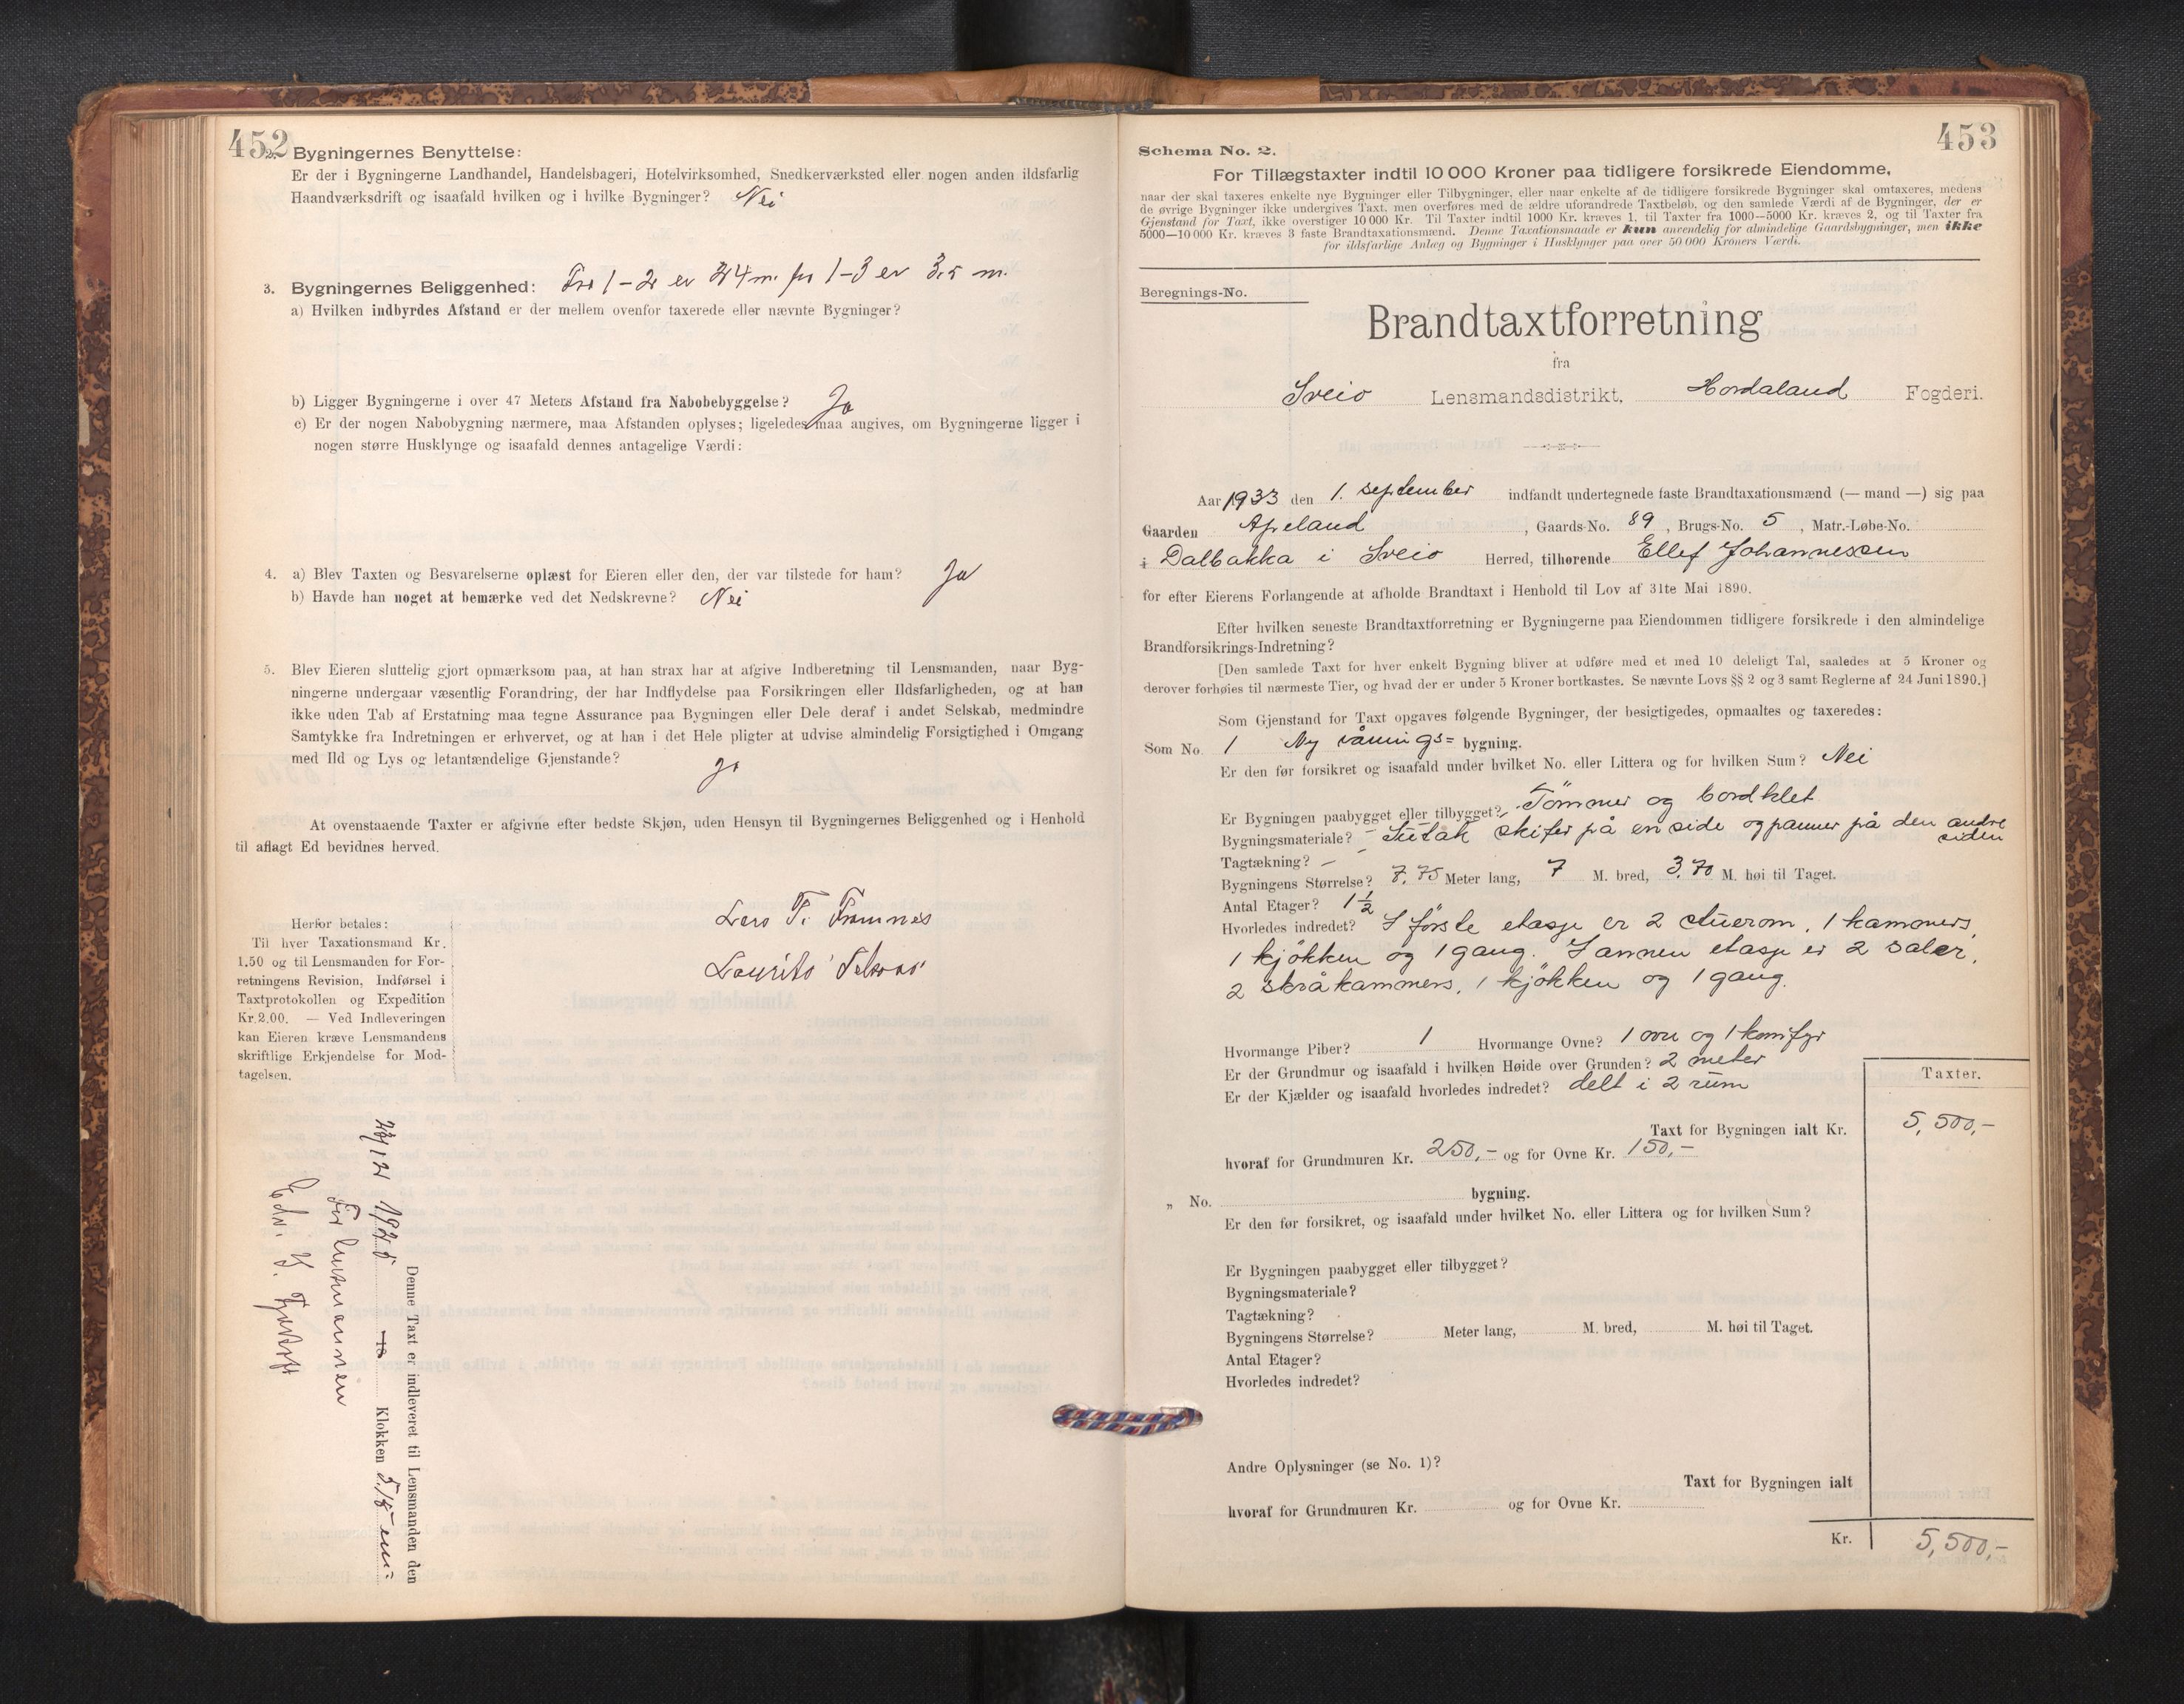 452
2. Bygningernes Benyttelse:
Er der i Bygningerne Landhandel, Handelsbageri, Hotelvirksomhed, Snedkerværksted eller nogen anden ildsfarlig
Haandværksdrift og isaafald hvilken og i hvilke Bygninger? Nei
3. Bygningernes Beliggenhed: Fra 1-2 er 24 m. fra 1-3 er 3,5 m.
a) Hvilken indbyrdes Afstand er der mellem ovenfor taxerede eller nævnte Bygninger?
b) Ligger Bygningerne i over 47 Meters Afstand fra Nabobebyggelse? Ja
c) Er der nogen Nabobygning nærmere, maa Afstanden oplyses; ligeledes maa angives, om Bygningerne ligger i
nogen større Husklynge og isaafald dennes antagelige Værdi:
4. a) Blev Taxten og Besvarelserne oplæst for Eieren eller den, der var tilstede for ham? Ja
b) Havde han noget at bemærke ved det Nedskrevne? Nei
5. Blev Eieren sluttelig gjort opmærksom paa, at han strax har at afgive Indberetning til Lensmanden, naar Byg-
ningerne undergaar væsentlig Forandring, der har Indflydelse paa Forsikringen eller Ildsfarligheden, og at han
ikke uden Tab af Erstatning maa tegne Assurance paa Bygningen eller Dele deraf i andet Selskab, medmindre
Samtykke fra Indretningen er erhvervet, og at han i det Hele pligter at udvise almindelig Forsigtighed i Omgang
med Ild og Lys og letantændelige Gjenstande? Ja
At ovenstaaende Taxter er afgivne efter bedste Skjøn, uden Hensyn til Bygningernes Beliggenhed og i Henhold
til aflagt Ed bevidnes herved.
Lars T. Framnes
Laurits
Herfor betales:
Til hver Taxationsmand Kr.
1.50 og til Lensmanden for For-
retningens Revision, Indførsel i
Taxtprotokollen og Expedition
Kr. 2.00. — Ved Indleveringen
kan Eieren kræve Lensmandens
skriftlige Erkjendelse for Mod-
tagelsen.
Denne Taxt er indleveret til Lensmanden den
Klokken 5
For lensmannen
453
Schema No. 2.
For Tillægstaxter indtil 10 000 Kroner paa tidligere forsikrede Eiendomme,
naar der skal taxeres enkelte nye Bygninger eller Tilbygninger, eller naar enkelte af de tidligere forsikrede Bygninger skal omtaxeres, medens
de øvrige Bygninger ikke undergives Taxt, men overføres med de ældre uforandrede Taxtbeløb, og den samlede Værdi af de Bygninger, der er
Gjenstand for Taxt, ikke overstiger 10 000 Kr. Til Taxter indtil 1000 Kr. kræves 1, til Taxter fra 1000—5000 Kr. kræves 2, og til Taxter fra
5000—10 000 Kr. kræves 3 faste Brandtaxationsmænd. Denne Taxationsmaade er kun anvendelig for almindelige Gaardsbygninger, men ikke
for ildsfarlige Anlæg og Bygninger i Husklynger paa over 50 000 Kroners Værdi.
Beregnings-No.
Brandtaxtforretning
fra
Sveio Lensmandsdistrikt, Hordaland Fogderi.
Aar 1933 den 1. september indfandt undertegnede faste Brandtaxationsmænd (— mand —) sig paa
Gaarden Apeland, Gaards-No. 89, Brugs-No. 5, Matr.-Løbe-No.
i Dalbakka i Sveio Herred, tilhørende Ellef Johannessen
for efter Eierens Forlangende at afholde Brandtaxt i Henhold til Lov af 31te Mai 1890.
Efter hvilken seneste Brandtaxtforretning er Bygningerne paa Eiendommen tidligere forsikrede i den almindelige
Brandforsikrings-Indretning?
[Den samlede Taxt for hver enkelt Bygning bliver at udføre med et med 10 deleligt Tal, saaledes at 5 Kroner og
derover forhøies til nærmeste Tier, og hvad der er under 5 Kroner bortkastes. Se nævnte Lovs §§ 2 og 3 samt Reglerne af 24 Juni 1890.]
Som Gjenstand for Taxt opgaves følgende Bygninger, der besigtigedes, opmaaltes og taxeredes:
Som No. 1 Ny vånings= bygning.
Er den før forsikret og isaafald under hvilket No. eller Littera og for hvilken Sum? Nei
Er Bygningen paabygget eller tilbygget? -
Bygningsmateriale? - Tömmer og bordklet
Tagtækning? - Sutak skifer på en side og panner på den andre siden
Bygningens Størrelse? 7,75 Meter lang, 7 M. bred, 3,70 M. høi til Taget.
Antal Etager? 1½
Hvorledes indredet? I förste etasje er 2 stuerom, 1 kammers,
1 kjökken og 1 gang. I annen etasje er 2 saler,
2 skråkammers, 1 kjökken og 1 gang.
Hvormange Piber? 1 Hvormange Ovne? 1 ovn og 1 komfyr
Er der Grundmur og isaafald i hvilken Høide over Grunden? 2 meter
Er der Kjælder og isaafald hvorledes indredet? delt i 2 rum
Taxter.
Taxt for Bygningen ialt Kr. 5,500,-
hvoraf for Grundmuren Kr. 250,- og for Ovne Kr. 150,-
„ No. bygning.
Er den før forsikret, og isaafald under hvilket No. eller Littera og for hvilken Sum?
Er Bygningen paabygget eller tilbygget?
Bygningsmateriale?
Tagtækning?
Bygningens Størrelse? Meter lang, M. bred, M. høi til Taget.
Antal Etager?
Hvorledes indredet?
Andre Oplysninger (se No. 1)?
Taxt for Bygningen ialt
hvoraf for Grundmuren Kr. og for Ovne Kr.
Kr. 5,500,-